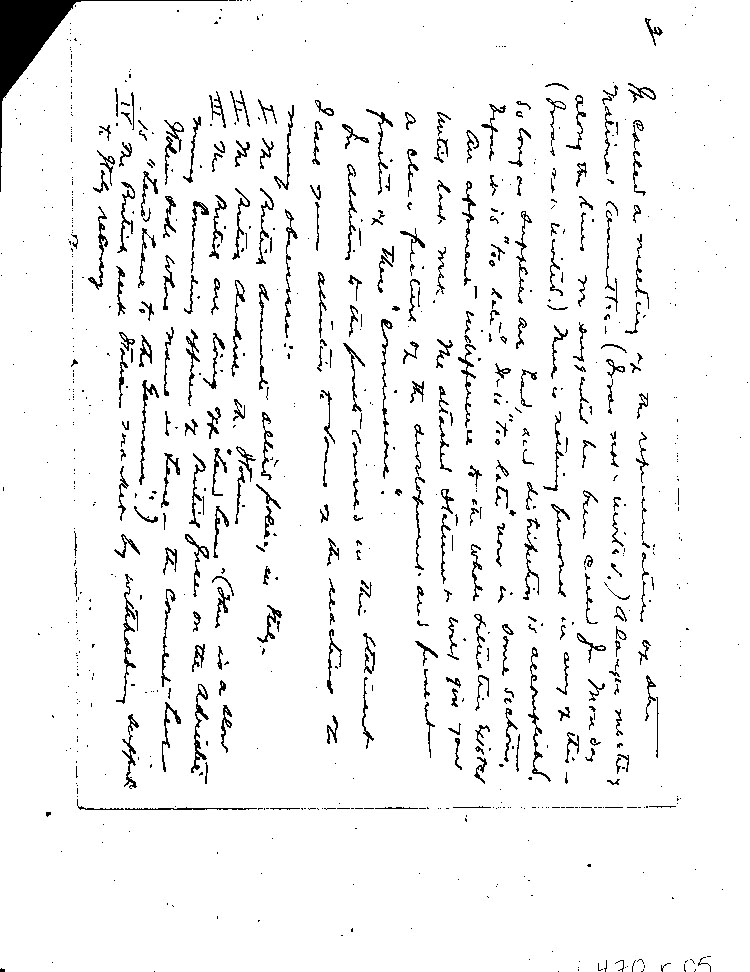 2
He called a meeting of the representatives of the
National Committee (I was not invited.) A larger meeting
along the lines you suggested has been called for Monday
(I was not invited.) There is nothing personal in any of this –
So long as supplies are had, and distribution is accomplished,
before it is "too late". It is "too late" now in some sections.
An apparent indifference to the whole situation existed
until last week. The attached statement will give you
a clear picture of the development and present
position of these "Commissions".
In addition to the points covered in this statement
I call your attention to some of the reactions of
many observers:-
I. The British dominate allied policy in Italy.
II. The British dislike the Italians
III. The British are living off "Lend Lease" (There is a slow
moving Commanding officer of British forces on the Adriatic
Italian side whose name is Leese – the comment here
is "Lend Leese to the Germans".)
IV. The British seek Italian market by withholding support
to Italy recovery
470 r 05